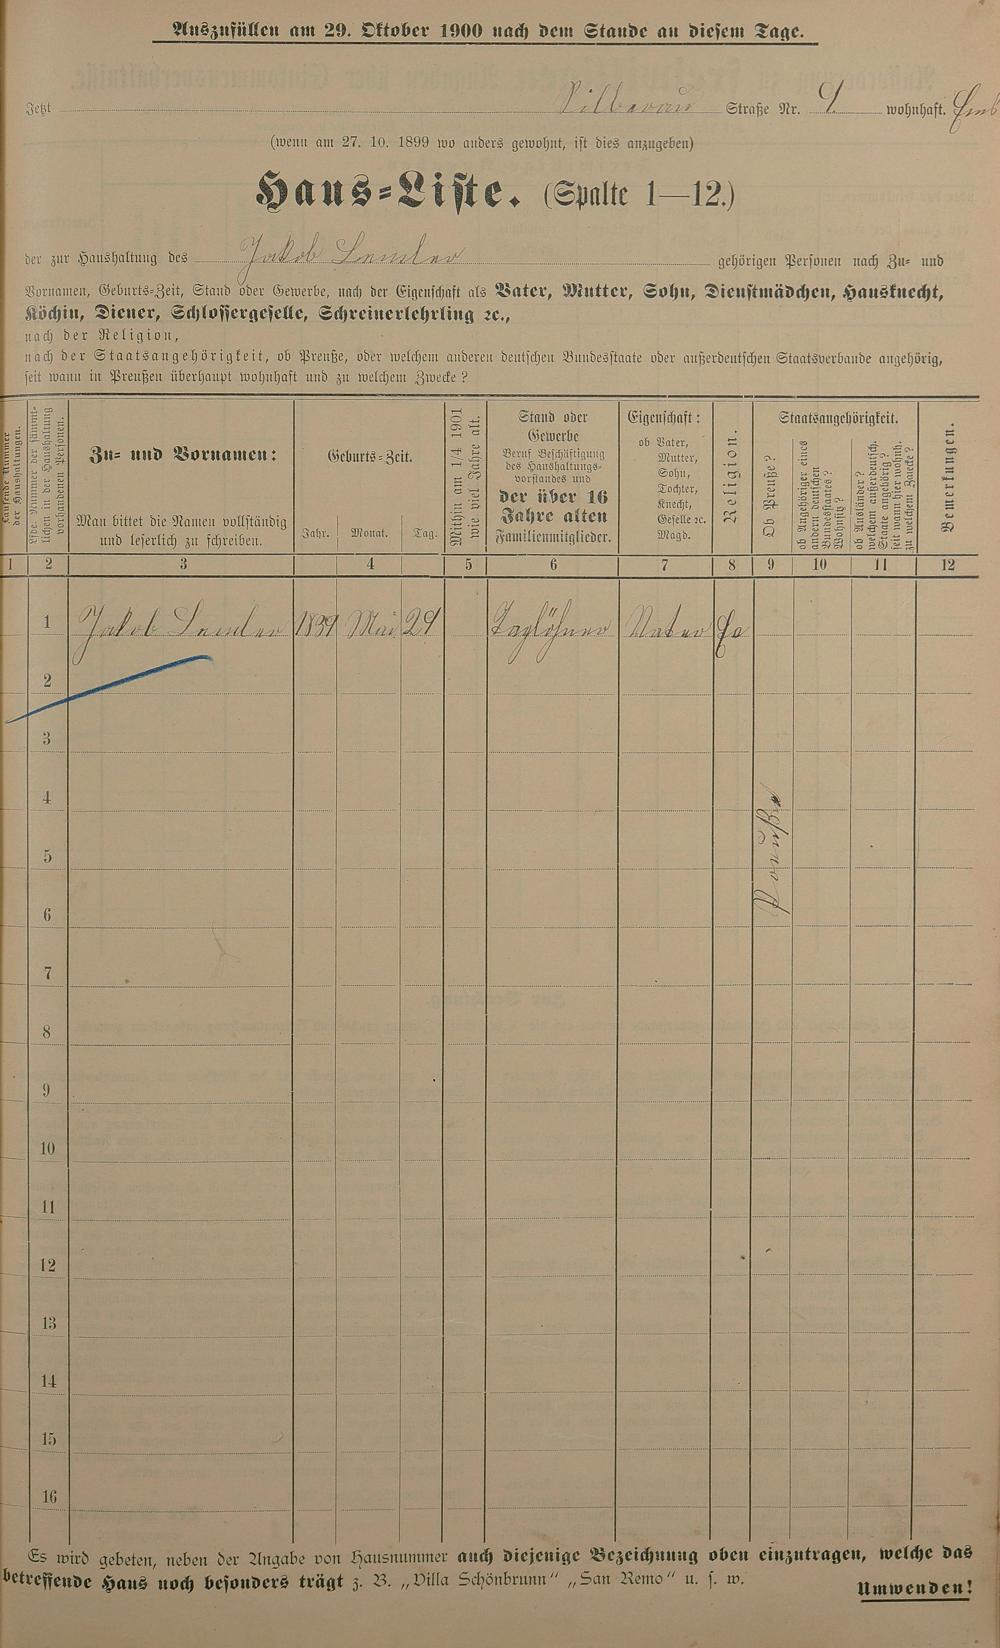 Auszufüllen am 29. Oktober 1900 nach dem Stande an diesem Tage.
Jetzt Silberau Straße Nr. 9 wohnhaft.
(wenn am 27. 10. 1899 wo anders gewohnt, ist dies anzugeben)
Haus-Liste. (Spalte 1—12.)
der zur Haushaltung des Jakob Lemler gehörigen Personen nach Zu- und
Vornamen, Geburts-Zeit, Stand oder Gewerbe, nach der Eigenschaft als Vater, Mutter, Sohn, Dienstmädchen, Hausknecht,
Köchin, Diener, Schlossergeselle, Schreinerlehrling ꝛc.,
nach der Religion,
nach der Staatsangehörigkeit, ob Preuße, oder welchem anderen deutschen Bundesstaate oder außerdeutschen Staatsverbande angehörig,
seit wann in Preußen überhaupt wohnhaft und zu welchem Zwecke?
Laufende Nummer
der Haushaltungen.
Lfde. Nummer der sämmt-
lichen in der Haushaltung
vorhandenen Personen.
Zu- und Vornamen:
Man bittet die Namen vollständig
und leserlich zu schreiben.
Geburts-Zeit.
Jahr. Monat. Tag.
Mithin am 1/4 1901
wie viel Jahre alt.
Stand oder
Gewerbe
Beruf Beschäftigung
des Haushaltungs-
vorstandes und
der über 16
Jahre alten
Familienmitglieder.
Eigenschaft:
ob Vater,
Mutter,
Sohn,
Tochter,
Knecht,
Geselle ꝛc.
Magd.
Religion.
Staatsangehörigkeit.
Ob Preuße?
ob Angehöriger eines
andern deutschen
Bundesstaates?
Wohnsitz?
ob Ausländer?
welchem außerdeutsch.
Staate angehörig?
seit wann hier wohnh.
zu welchem Zwecke?
Bemerkungen.
1 2 3 4 5 6 7 8 9 10 11 12
1 Jakob Lemler 1839 Mai 29 Taglöhner Vater Ev
2
3
4
5
6
Preuße
7
8
9
10
11
12
13
14
15
16
Es wird gebeten, neben der Angabe von Hausnummer auch diejenige Bezeichnung oben einzutragen, welche das
betreffende Haus noch besonders trägt z. B. „Villa Schönbrunn“ „San Remo“ u. s. w.
Umwenden!